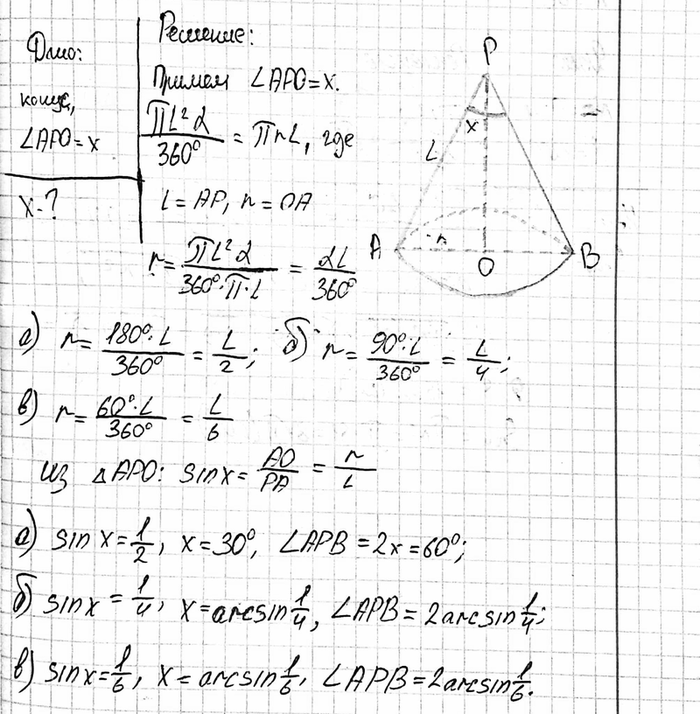 Дано:
конус,
∠APO = x
x - ?
Решение:
Примем ∠APO = x.
πL²α/360° = πrL, где
L = AP, r = OA
r = πL²α/(360°·π·L) = αL/360°
а) r = 180°·L/360° = L/2; б) r = 90°·L/360° = L/4;
в) r = 60°·L/360° = L/6
Из △APO: sin x = AO/PA = r/L
а) sin x = 1/2, x = 30°, ∠APB = 2x = 60°;
б) sin x = 1/4, x = arcsin 1/4, ∠APB = 2arcsin 1/4;
в) sin x = 1/6, x = arcsin 1/6, ∠APB = 2arcsin 1/6.
P
x
L
A
r
O
B